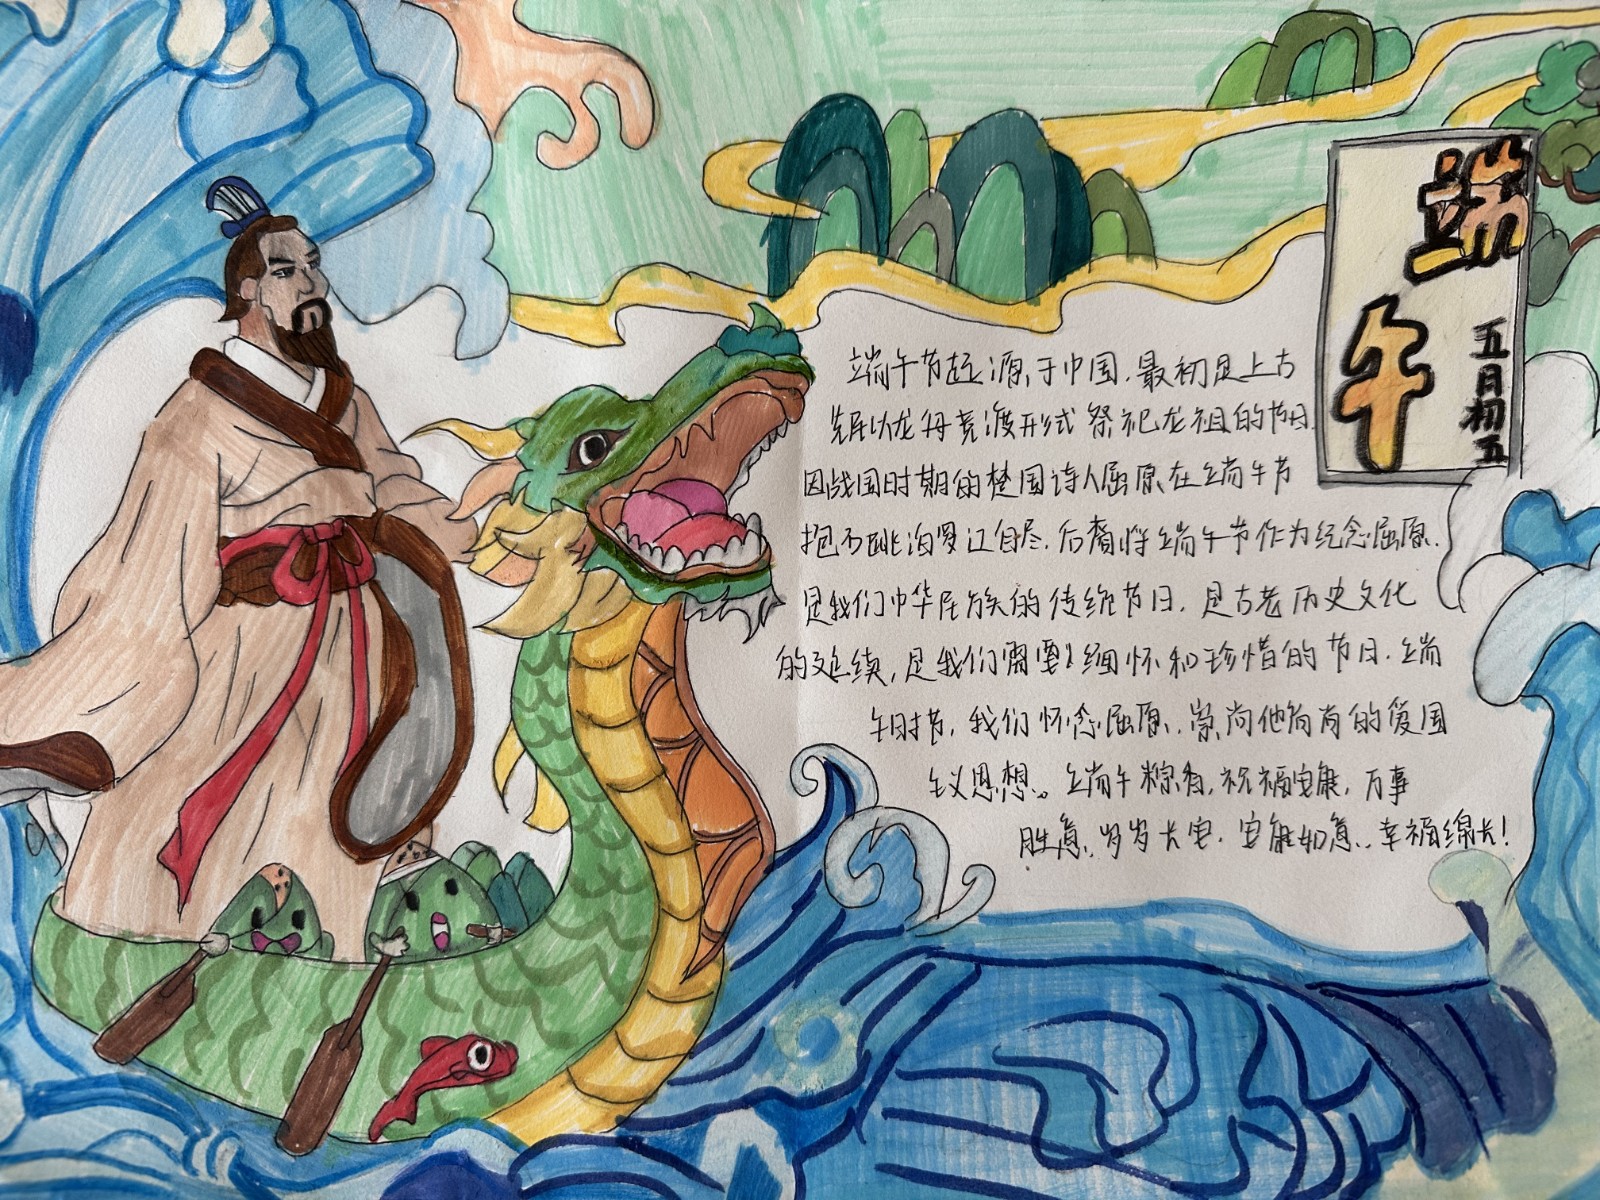 端午
五月初五
端午节起源于中国，最初是上古
先民以龙舟竞渡形式祭祀龙祖的节日.
因战国时期的楚国诗人屈原在端午节
抱石跳汨罗江自尽，后裔将端午节作为纪念屈原.
是我们中华民族的传统节日，是古老历史文化
的延续，是我们需要缅怀和珍惜的节日.端
午时节，我们怀念屈原，崇尚他高尚的爱国
主义思想。端午粽香，祝福安康，万事
胜意，岁岁长安，安康如意，幸福绵长！